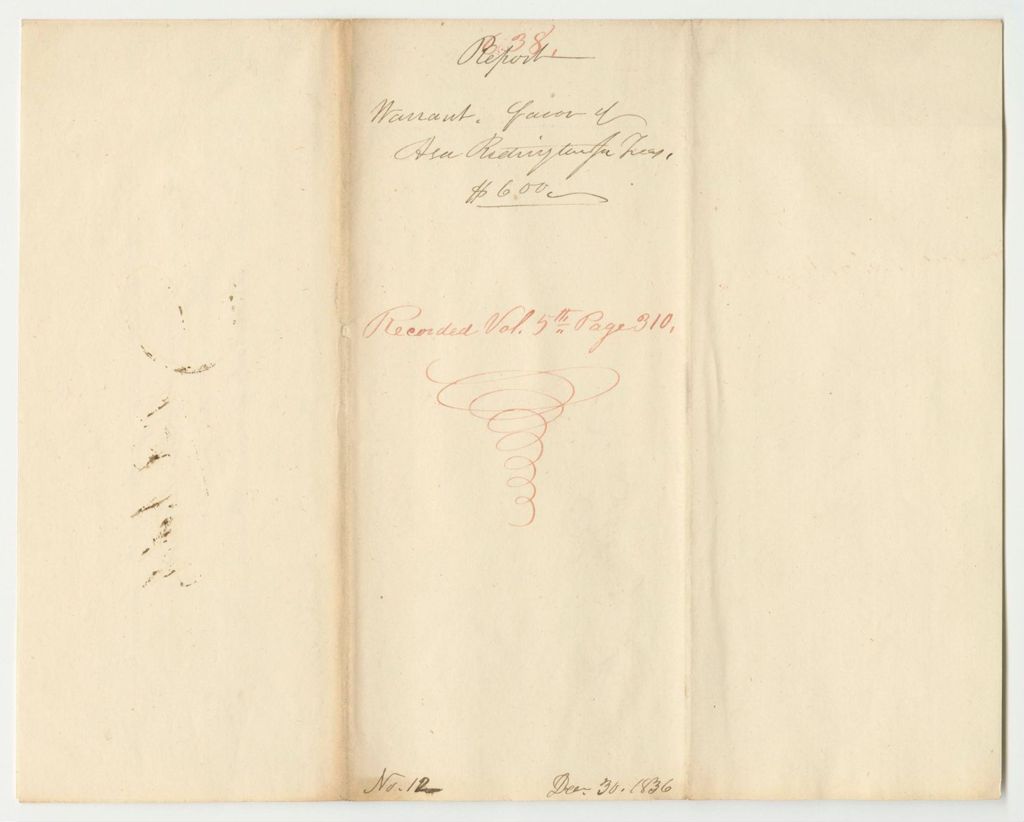 38.
Report
Warrant. favor of
Asa Redington Jr Treas.
$600.
Recorded Vol. 5th Page 310.
No. 12
Dec. 30. 1836